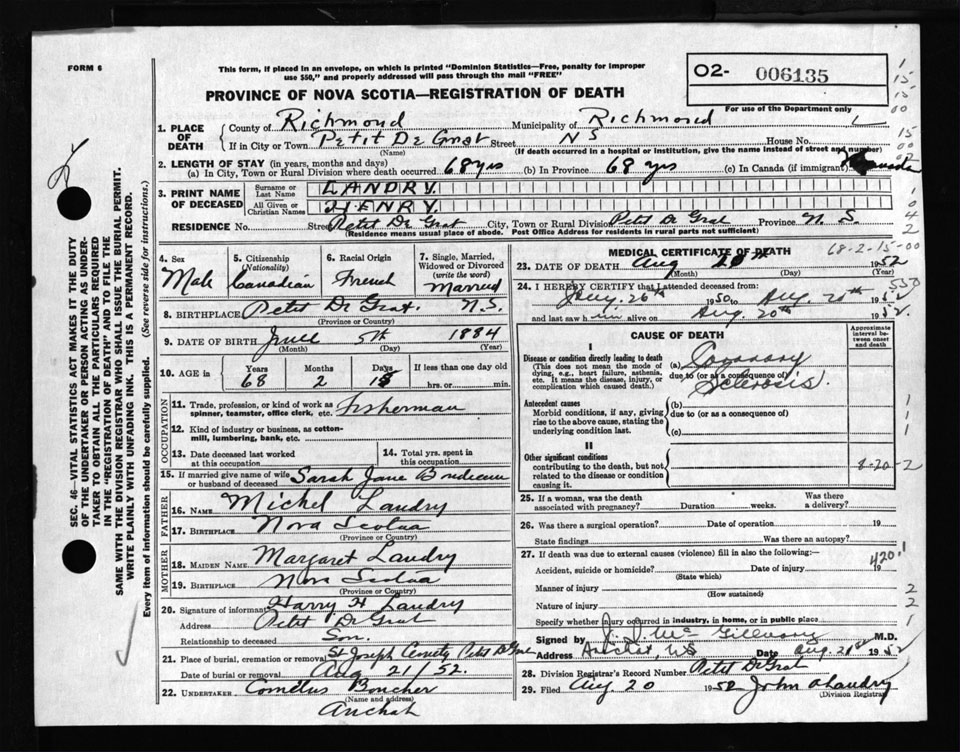 FORM 6
This form, if placed in an envelope, on which is printed "Dominion Statistics—Free, penalty for improper
use $50," and properly addressed will pass through the mail "FREE"
O2- 006135
For use of the Department only
PROVINCE OF NOVA SCOTIA—REGISTRATION OF DEATH
1. PLACE OF DEATH County of Richmond Municipality of Richmond
If in City or Town Petit De Grat Street N S House No.
(Name) (If death occurred in a hospital or institution, give the name instead of street and number)
2. LENGTH OF STAY (in years, months and days)
(a) In City, Town or Rural Division where death occurred 68 yrs (b) In Province 68 yrs (c) In Canada (if immigrant)
3. PRINT NAME OF DECEASED Surname or Last Name LANDRY
All Given or Christian Names HENRY
RESIDENCE No. Street Petit De Grat City, Town or Rural Division Petit De Grat Province N. S.
(Residence means usual place of abode. Post Office Address for residents in rural parts not sufficient)
4. Sex 5. Citizenship (Nationality) 6. Racial Origin 7. Single, Married, Widowed or Divorced (write the word)
Male Canadian French Married
8. BIRTHPLACE Petit De Grat N.S.
(Province or Country)
9. DATE OF BIRTH June 5th 1884
(Month) (Day) (Year)
10. AGE in Years Months Days If less than one day old
68 2 15 hrs. or min.
OCCUPATION
11. Trade, profession, or kind of work as spinner, teamster, office clerk, etc. Fisherman
12. Kind of industry or business, as cotton-mill, lumbering, bank, etc.
13. Date deceased last worked at this occupation
14. Total yrs. spent in this occupation
15. If married give name of wife or husband of deceased Sarah Jane
FATHER
16. Name Michel Landry
17. Birthplace Nova Scotia
(Province or Country)
MOTHER
18. Maiden Name Margaret Landry
19. Birthplace Nova Scotia
(Province or Country)
20. Signature of informant Harry H Landry
Address Petit De Grat
Relationship to deceased Son.
21. Place of burial, cremation or removal St Joseph Petit De Grat
Date of burial or removal Aug 21/52.
22. Undertaker Cornelius Boucher
(Name and address)
Arichat
MEDICAL CERTIFICATE OF DEATH
68-2-15-00
23. DATE OF DEATH Aug 20th 1952
(Month) (Day) (Year)
24. I HEREBY CERTIFY that I attended deceased from:
26th 1950 to Aug. 20th 1952
and last saw him alive on Aug. 20th 1952.
CAUSE OF DEATH
Approximate interval between onset and death
I
Disease or condition directly leading to death (a) Coronary
(This does not mean the mode of dying, e.g., heart failure, asthenia, etc. It means the disease, injury, or complication which caused death.) due to (or as a consequence of) Sclerosis.
Antecedent causes (b)
Morbid conditions, if any, giving rise to the above cause, stating the underlying condition last. due to (or as a consequence of)
(c)
II
Other significant conditions
contributing to the death, but not related to the disease or condition causing it
8-20-2
25. If a woman, was the death associated with pregnancy? Duration weeks. Was there a delivery?
26. Was there a surgical operation? Date of operation 19
State findings Was there an autopsy?
27. If death was due to external causes (violence) fill in also the following:—
420.1
Accident, suicide or homicide? Date of injury 19
(State which)
Manner of injury
(How sustained)
Nature of injury
Specify whether injury occurred in industry, in home, or in public place
Signed by M.D.
Address Arichat, NS Date Aug. 21st 1952
28. Division Registrar's Record Number Petit De Grat
29. Filed Aug 20 1952 John Landry
(Division Registrar)
SEC. 46—VITAL STATISTICS ACT MAKES IT THE DUTY
OF THE UNDERTAKER OR PERSON ACTING AS UNDER-
TAKER TO OBTAIN ALL THE PARTICULARS REQUIRED
IN THE "REGISTRATION OF DEATH" AND TO FILE THE
SAME WITH THE DIVISION REGISTRAR WHO SHALL ISSUE THE BURIAL PERMIT.
WRITE PLAINLY WITH UNFADING INK. THIS IS A PERMANENT RECORD.
Every item of information should be carefully supplied. (See reverse side for instructions.)